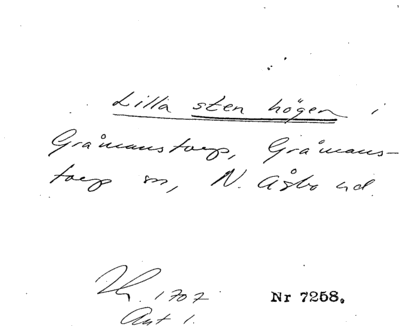 Lilla sten högen i
Gråmanstorp, Gråmans-
torp sn, N. Åsbo hd.
1707
Ant 1.
Nr 7258.